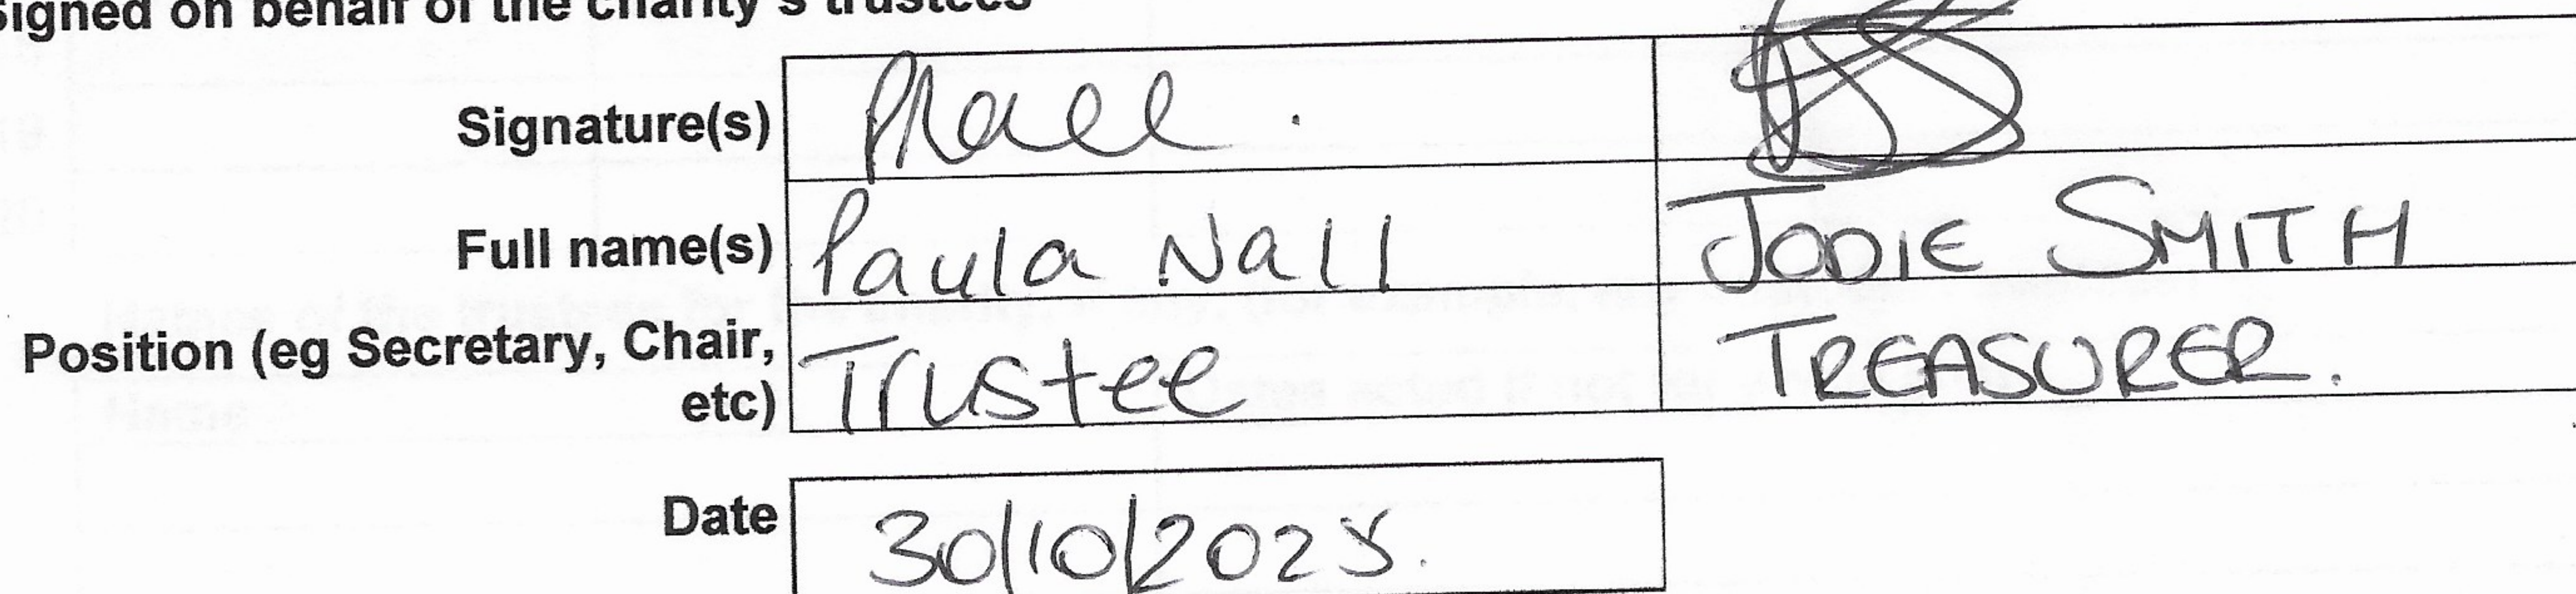 Signed on behalf of the charity's trustees
Signature(s) PNall.
Full name(s) Paula Nall JODIE SMITH
Position (eg Secretary, Chair, etc) Trustee TREASURER.
Date 30/10/2025.